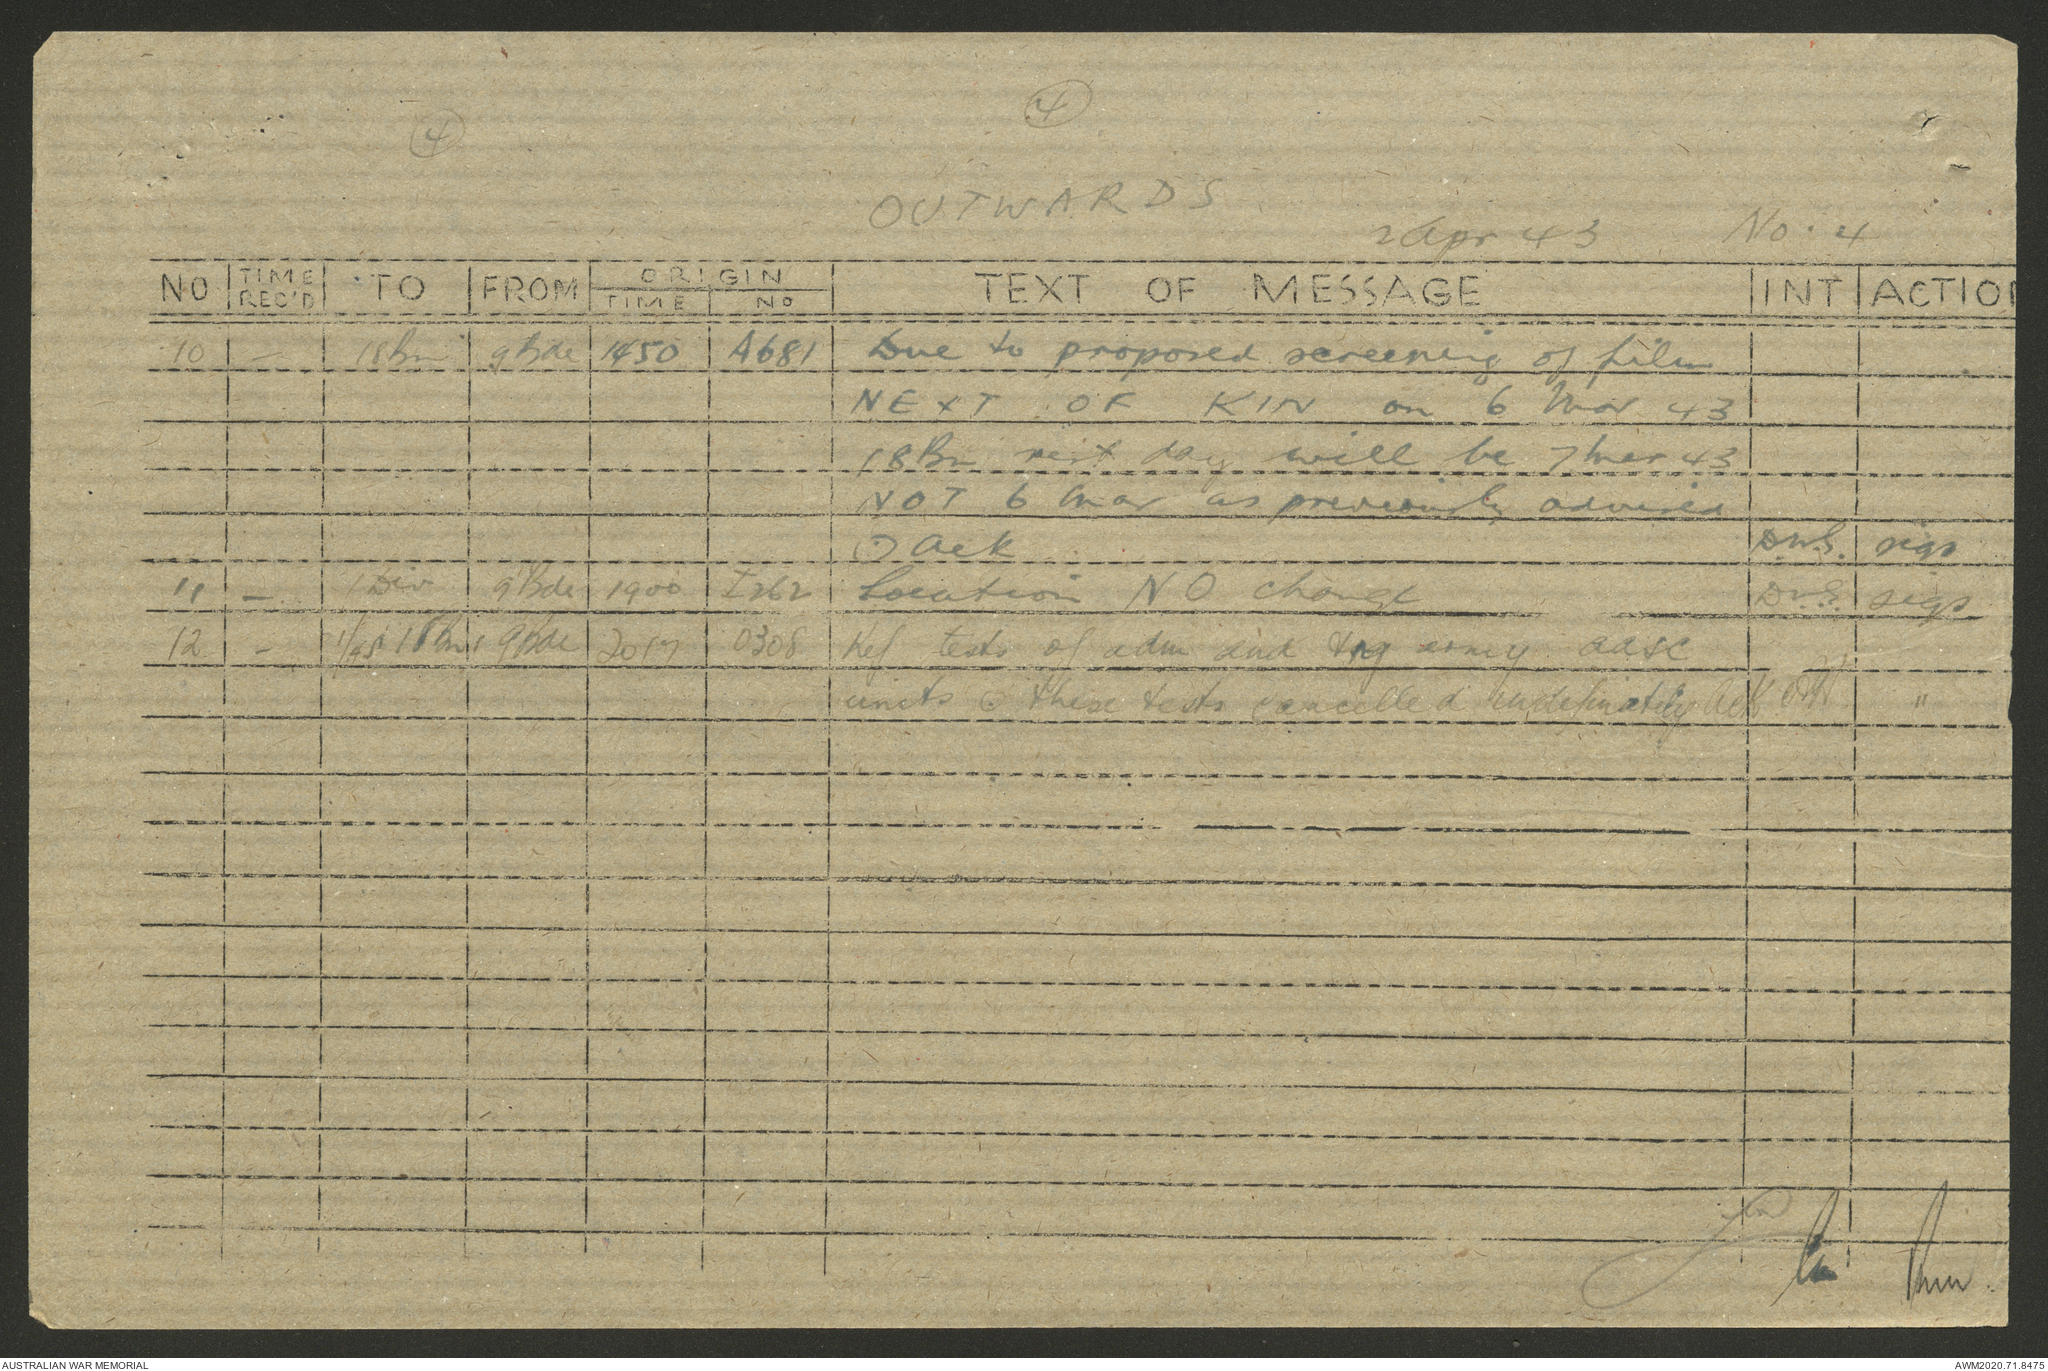 4
4
OUTWARDS
2 Apr 43 No. 4
NO TIME REC'D TO FROM ORIGIN TIME NO TEXT OF MESSAGE INT ACTION
10 – 18 Bn 9 Bde 1450 A681 Due to proposed screening of film
NEXT OF KIN on 6 Mar 43
18 Bn rest day will be 7 Mar 43
NOT 6 Mar as previously advised
Ack D.W.S. sigs
11 – 1 Div 9 Bde 1900 I262 Location NO change sigs
12 – 1/45 18 Bns 9 Bde 2017 0308 Ref tests of adm and trg army aasc
units these tests cancelled indefinately Ack "
AUSTRALIAN WAR MEMORIAL
AWM2020.71.8475